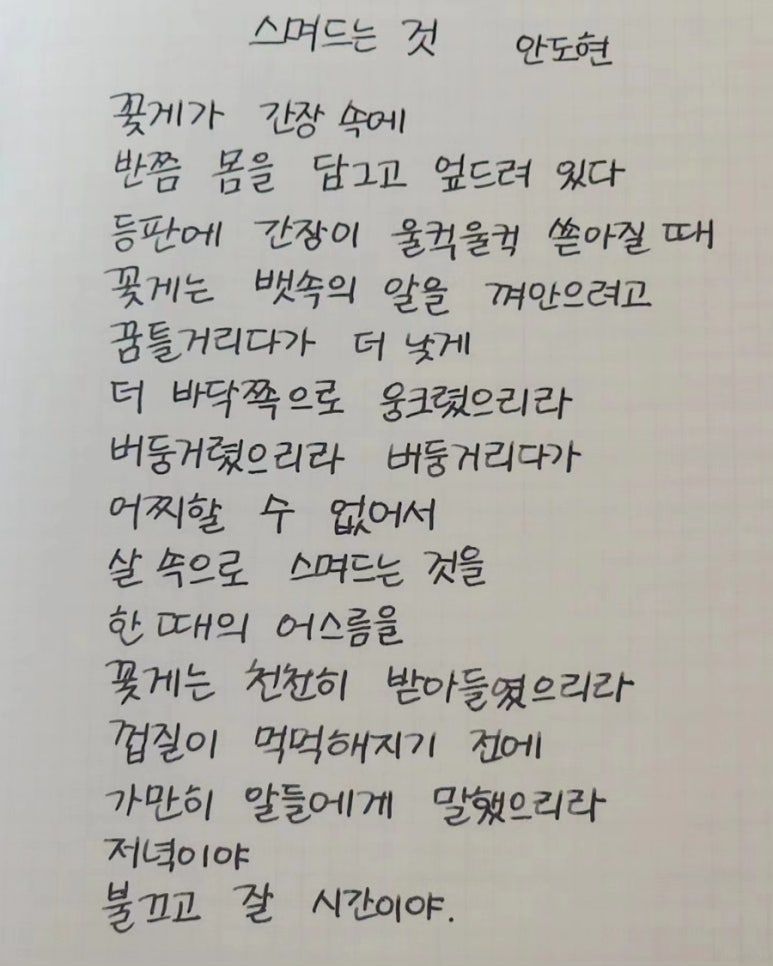 스며드는 것 안도현
꽃게가 간장 속에
반쯤 몸을 담그고 엎드려 있다
등판에 간장이 울컥울컥 쏟아질 때
꽃게는 뱃속의 알을 껴안으려고
꿈틀거리다가 더 낮게
더 바닥쪽으로 웅크렸으리라
버둥거렸으리라 버둥거리다가
어찌할 수 없어서
살 속으로 스며드는 것을
한 때의 어스름을
꽃게는 천천히 받아들였으리라
껍질이 먹먹해지기 전에
가만히 알들에게 말했으리라
저녁이야
불끄고 잘 시간이야.